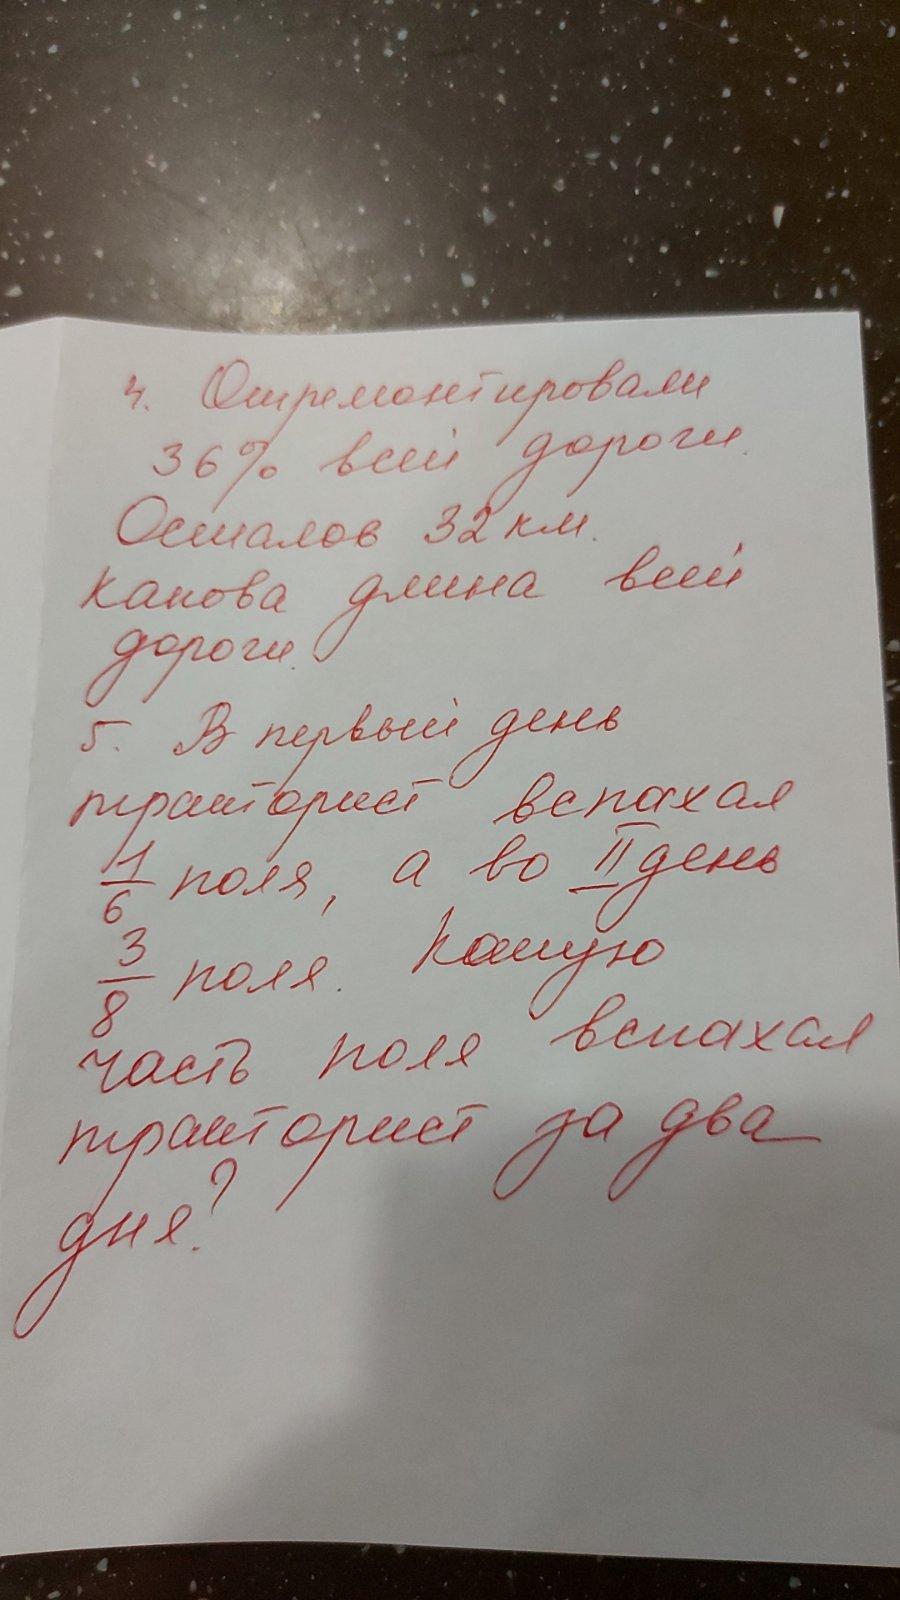 4. Отремонтировали
36% всей дороги.
Осталов 32 км.
Какова длина всей
дороги.
5. В первый день
тракторист вспахал
1/6 поля, а во II день
3/8 поля. Какую
часть поля вспахал
тракторист за два
дня?